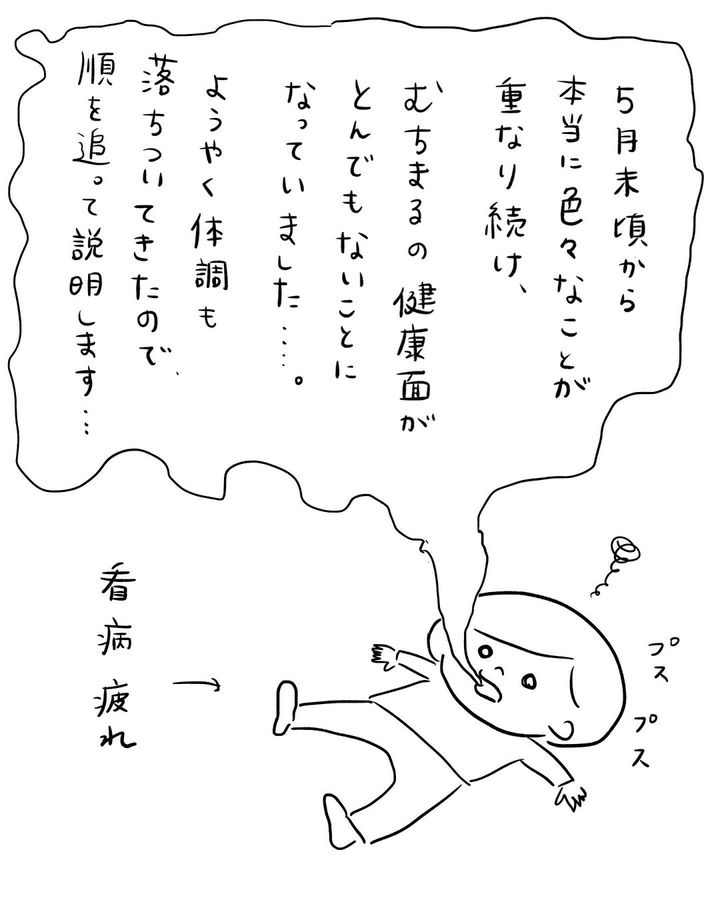 5月末頃から
本当に色々なことが
重なり続け、
むちまるの健康面が
とんでもないことに
なっていました……。
ようやく体調も
落ちついてきたので、
順を追って説明します…
看病疲れ
→
プス
プス